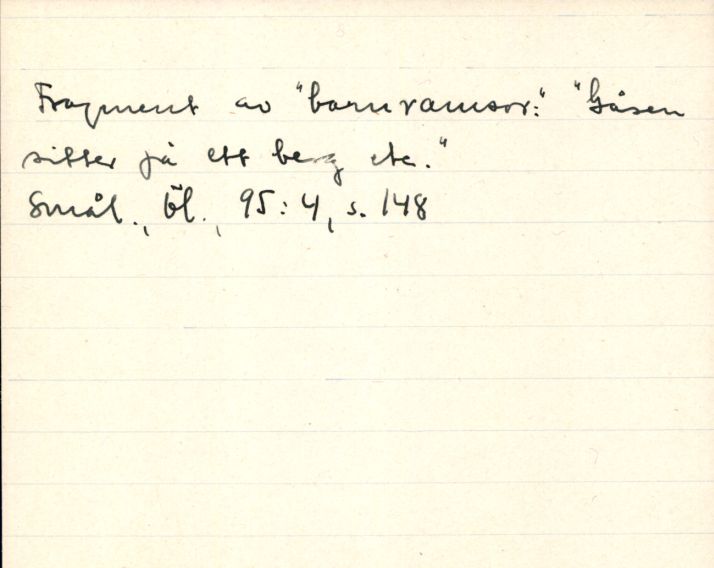 Fragment av "barnramsor:" "Gåsen
sitter på ett berg etc."
Smål., Öl., 95:4, s. 148